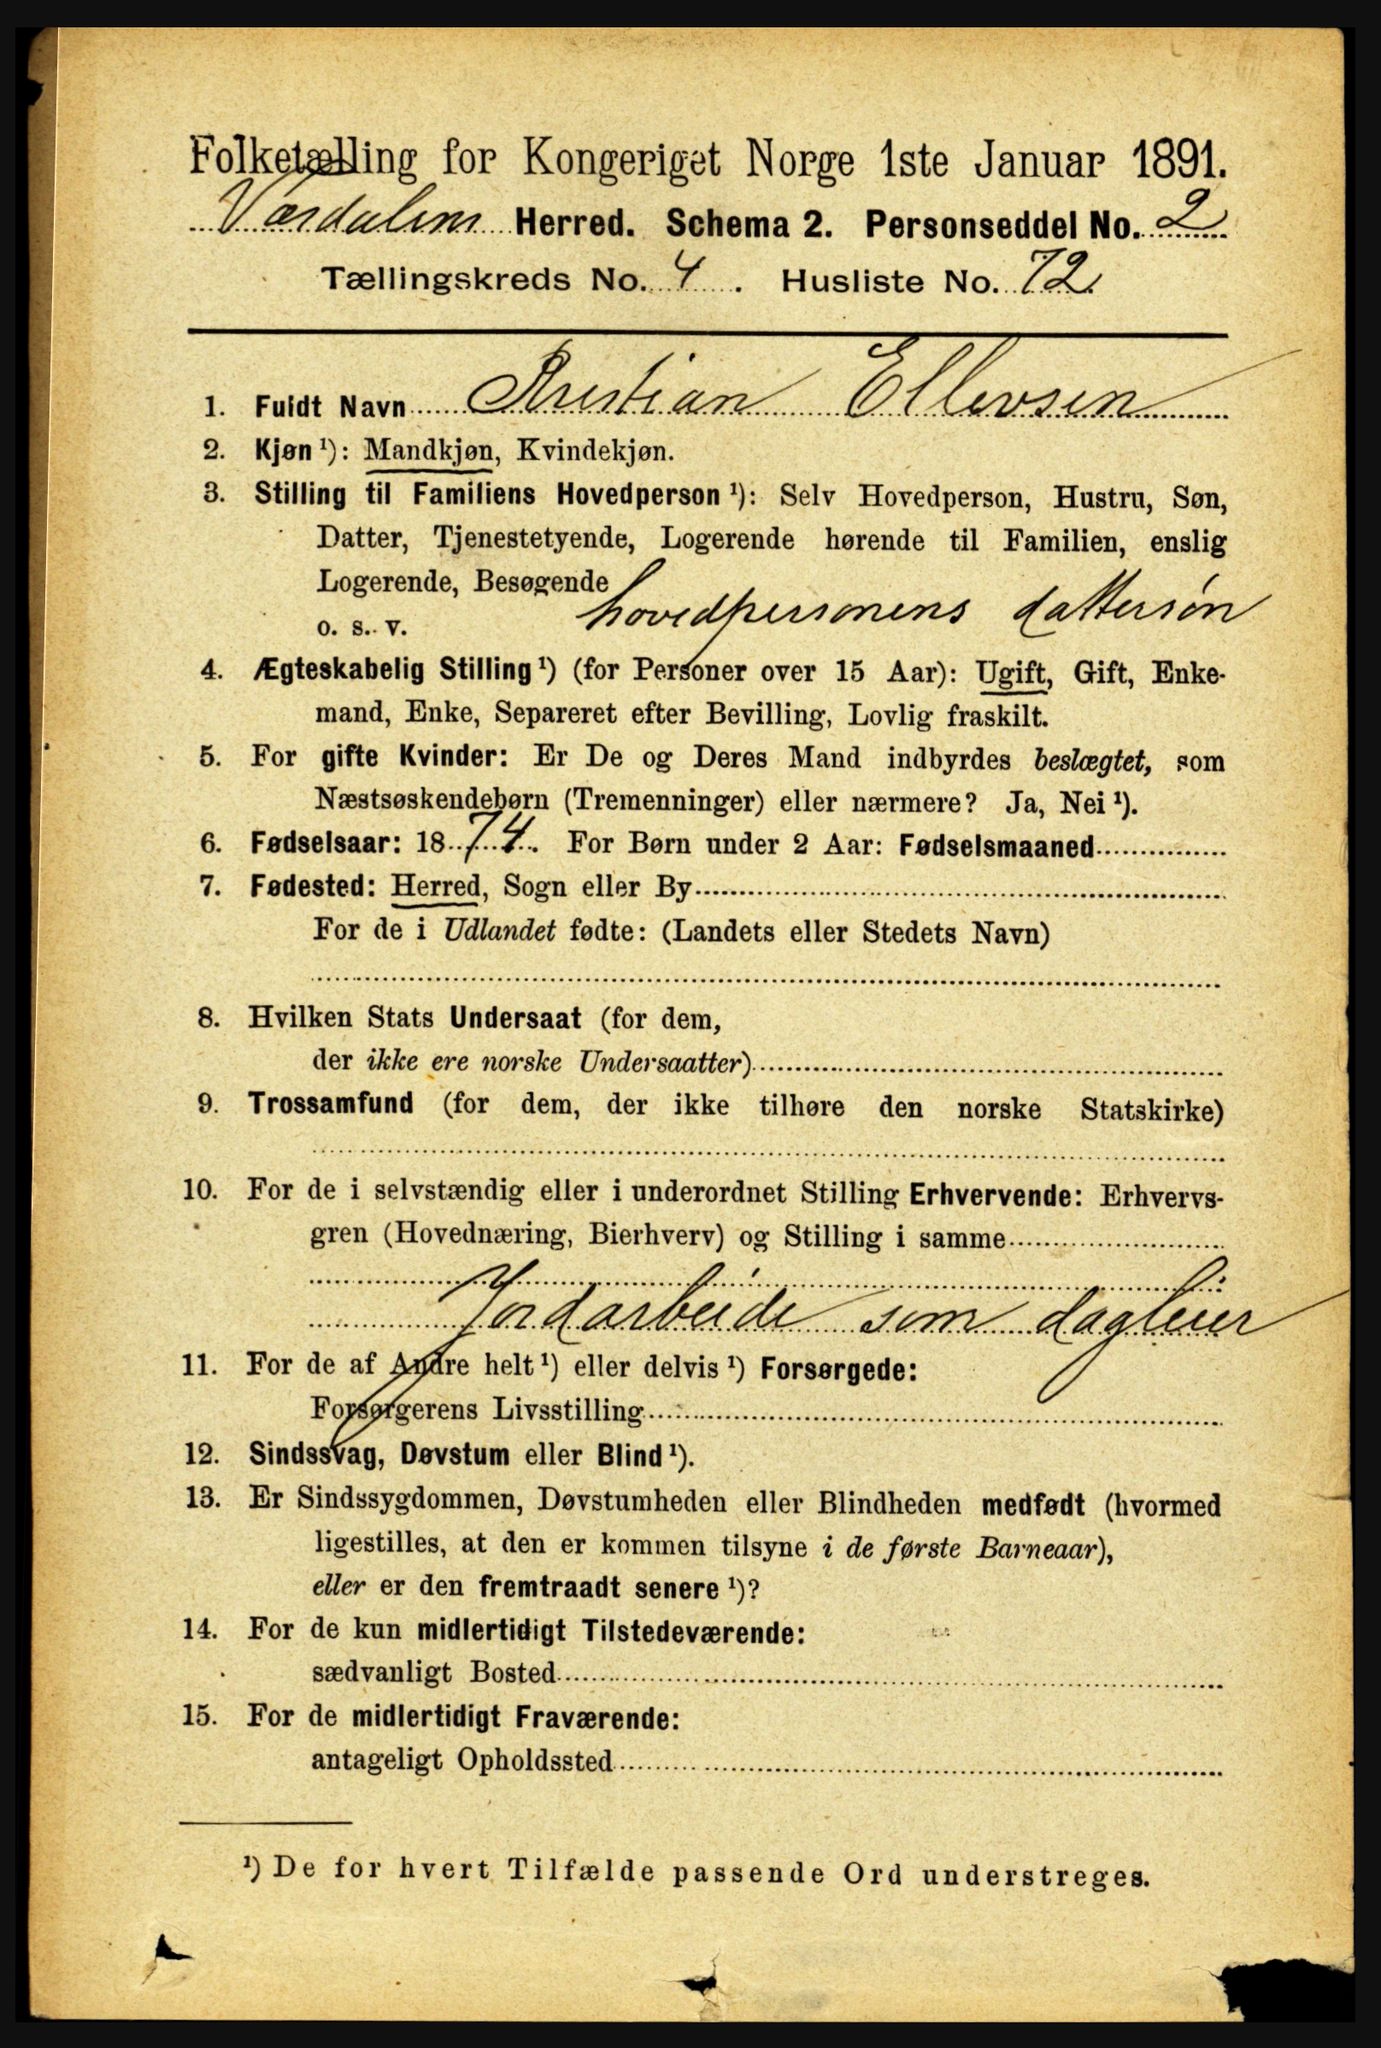 Folketælling for Kongeriget Norge 1ste Januar 1891.
Værdalens Herred. Schema 2. Personseddel No. 2
Tællingskreds No. 4. Husliste No. 72.
1. Fuldt Navn Kristian Ellevsen
2. Kjøn ¹): Mandkjøn, Kvindekjøn.
3. Stilling til Familiens Hovedperson ¹): Selv Hovedperson, Hustru, Søn,
Datter, Tjenestetyende, Logerende hørende til Familien, enslig
Logerende, Besøgende
o. s. v. hovedpersonens dattersøn
4. Ægteskabelig Stilling ¹) (for Personer over 15 Aar): Ugift, Gift, Enke-
mand, Enke, Separeret efter Bevilling, Lovlig fraskilt.
5. For gifte Kvinder: Er De og Deres Mand indbyrdes beslægtet, som
Næstsøskendebørn (Tremenninger) eller nærmere? Ja, Nei ¹).
6. Fødselsaar: 1874. For Børn under 2 Aar: Fødselsmaaned
7. Fødested: Herred, Sogn eller By
For de i Udlandet fødte: (Landets eller Stedets Navn)
8. Hvilken Stats Undersaat (for dem,
der ikke ere norske Undersaatter)
9. Trossamfund (for dem, der ikke tilhøre den norske Statskirke)
10. For de i selvstændig eller i underordnet Stilling Erhvervende: Erhvervs-
gren (Hovednæring, Bierhverv) og Stilling i samme
Jordarbeide som dagleier
11. For de af Andre helt ¹) eller delvis ¹) Forsørgede:
Forsørgerens Livsstilling
12. Sindssvag, Døvstum eller Blind ¹).
13. Er Sindssygdommen, Døvstumheden eller Blindheden medfødt (hvormed
ligestilles, at den er kommen tilsyne i de første Barneaar),
eller er den fremtraadt senere ¹)?
14. For de kun midlertidigt Tilstedeværende:
sædvanligt Bosted
15. For de midlertidigt Fraværende:
antageligt Opholdssted
¹) De for hvert Tilfælde passende Ord understreges.